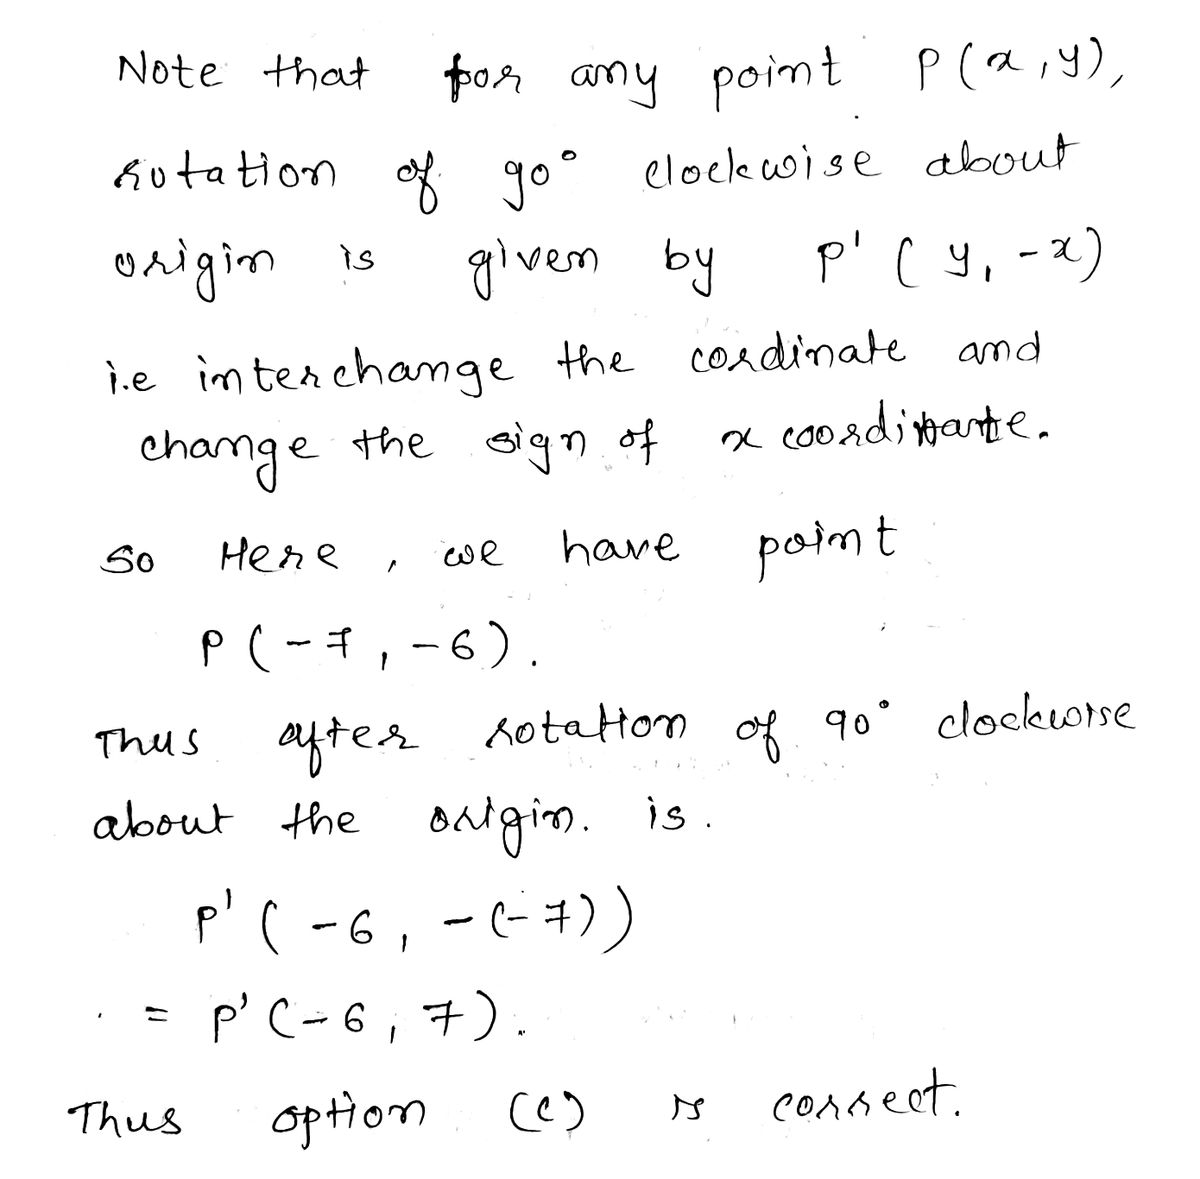 Note that for any point P(x,y),
rotation of 90° clockwise about
origin is given by p' ( y, -x)
i.e interchange the cordinate and
change the sign of x coordinate.
So Here, we have point
P(-7, -6).
Thus after rotation of 90° clockwise
about the origin. is.
p' ( -6, -(-7))
= p' (-6, 7).
Thus option (c) is correct.